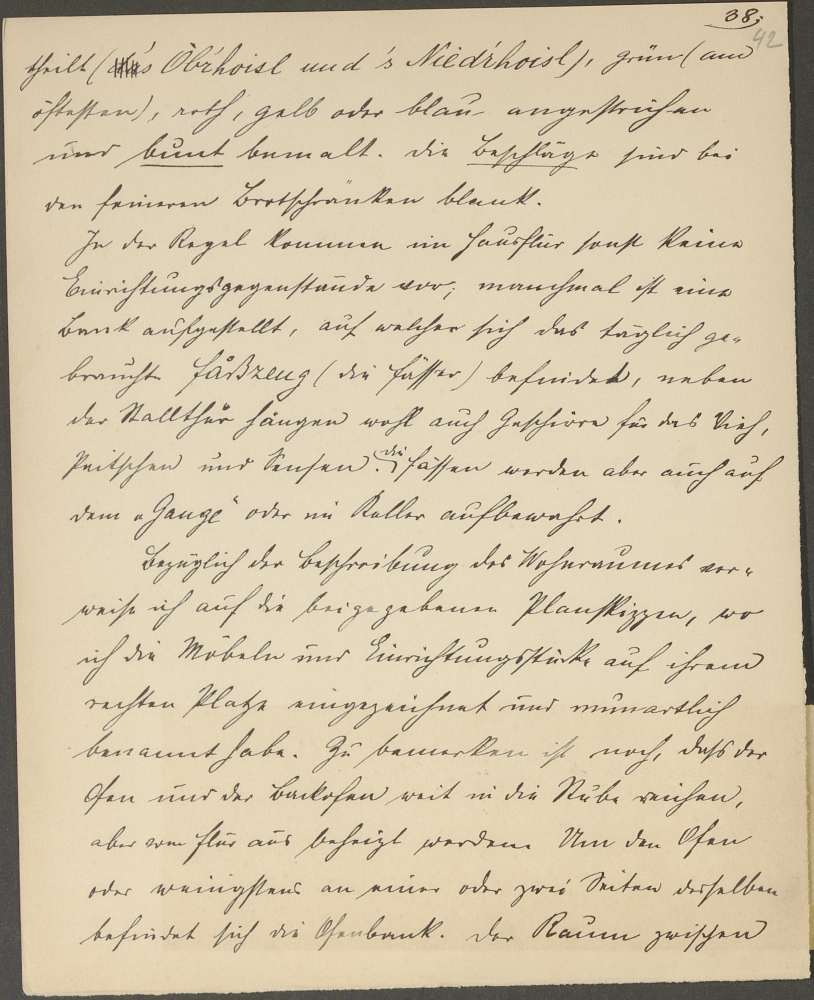 38.
42
theilt ('s Öb'rhoisl und 's Niedrhoisl), grün (am
öftesten), roth, gelb oder blau angestrichen
und bunt bemalt. Die Beschläge sind bei
den feineren Brotschränken blank.
In der Regel kommen im Hausflur sonst keine
Einrichtungsgegenstände vor; manchmal ist eine
Bank aufgestellt, auf welcher sich das täglich ge-
brauchte Fåßzeug (die Fässer) befindet, neben
der Stallthür hängen wohl auch Geschirre für das Vieh,
Peitschen und Sensen. Die Fässer werden aber auch auf
dem „Gange“ oder im Keller aufbewahrt.
Bezüglich der Beschreibung des Wohnraumes ver-
weise ich auf die beigegebenen Planskizzen, wo
ich die Möbeln und Einrichtungsstücke auf ihrem
rechten Platze eingezeichnet und mundartlich
benannt habe. Zu bemerken ist noch, dass der
Ofen und der Backofen weit in die Stube reichen,
aber vom Flur aus beheizt werden. Um den Ofen
oder wenigstens an einer oder zwei Seiten desselben
befindet sich die Ofenbank. Der Raum zwischen